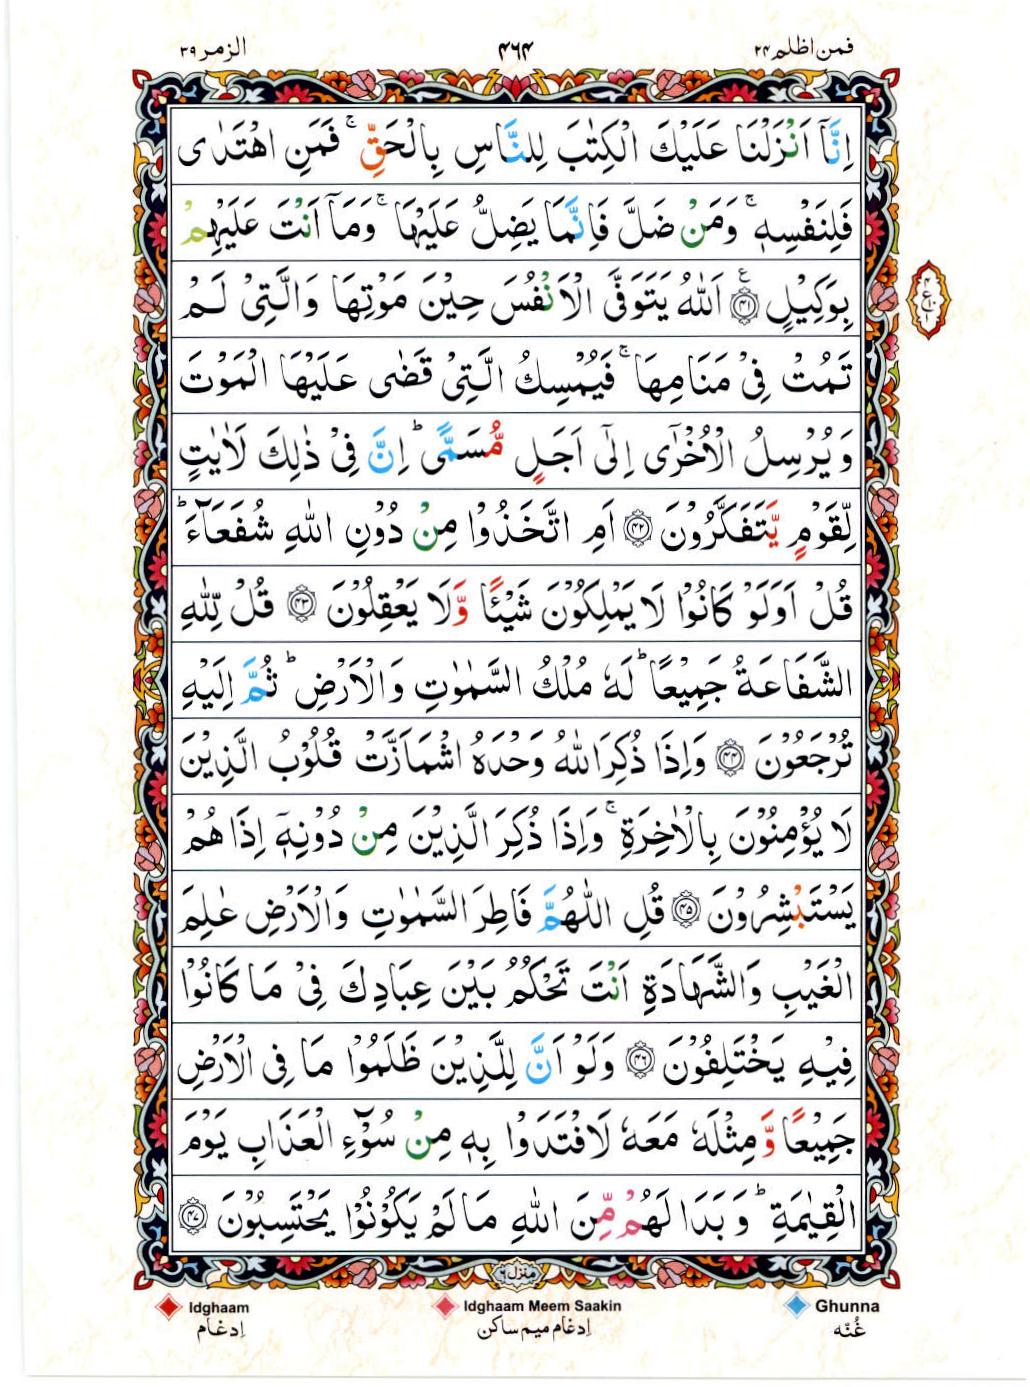 فمن اظلم ۲۴
۴۶۴
الزمر ۳۹
اِنَّاۤ اَنْزَلْنَا عَلَيْكَ الْكِتٰبَ لِلنَّاسِ بِالْحَقِّ ۚ فَمَنِ اهْتَدٰى
فَلِنَفْسِهٖ ۚ وَمَنْ ضَلَّ فَاِنَّمَا يَضِلُّ عَلَيْهَا ۚ وَمَاۤ اَنْتَ عَلَيْهِمْ
بِوَكِيْلٍ ﴿۴۱﴾ اَللّٰهُ يَتَوَفَّى الْاَنْفُسَ حِيْنَ مَوْتِهَا وَالَّتِيْ لَمْ
تَمُتْ فِيْ مَنَامِهَا ۚ فَيُمْسِكُ الَّتِيْ قَضٰى عَلَيْهَا الْمَوْتَ
وَيُرْسِلُ الْاُخْرٰۤى اِلٰۤى اَجَلٍ مُّسَمًّى ؕ اِنَّ فِيْ ذٰلِكَ لَاٰيٰتٍ
لِّقَوْمٍ يَّتَفَكَّرُوْنَ ﴿۴۲﴾ اَمِ اتَّخَذُوْا مِنْ دُوْنِ اللّٰهِ شُفَعَآءَ ؕ
قُلْ اَوَلَوْ كَانُوْا لَا يَمْلِكُوْنَ شَيْـًٔا وَّلَا يَعْقِلُوْنَ ﴿۴۳﴾ قُلْ لِّلّٰهِ
الشَّفَاعَةُ جَمِيْعًا ؕ لَهٗ مُلْكُ السَّمٰوٰتِ وَالْاَرْضِ ؕ ثُمَّ اِلَيْهِ
تُرْجَعُوْنَ ﴿۴۴﴾ وَاِذَا ذُكِرَ اللّٰهُ وَحْدَهُ اشْمَاَزَّتْ قُلُوْبُ الَّذِيْنَ
لَا يُؤْمِنُوْنَ بِالْاٰخِرَةِ ۚ وَاِذَا ذُكِرَ الَّذِيْنَ مِنْ دُوْنِهٖۤ اِذَا هُمْ
يَسْتَبْشِرُوْنَ ﴿۴۵﴾ قُلِ اللّٰهُمَّ فَاطِرَ السَّمٰوٰتِ وَالْاَرْضِ عٰلِمَ
الْغَيْبِ وَالشَّهَادَةِ اَنْتَ تَحْكُمُ بَيْنَ عِبَادِكَ فِيْ مَا كَانُوْا
فِيْهِ يَخْتَلِفُوْنَ ﴿۴۶﴾ وَلَوْ اَنَّ لِلَّذِيْنَ ظَلَمُوْا مَا فِى الْاَرْضِ
جَمِيْعًا وَّمِثْلَهٗ مَعَهٗ لَافْتَدَوْا بِهٖ مِنْ سُوْٓءِ الْعَذَابِ يَوْمَ
الْقِيٰمَةِ ؕ وَبَدَا لَهُمْ مِّنَ اللّٰهِ مَا لَمْ يَكُوْنُوْا يَحْتَسِبُوْنَ ﴿۴۷﴾
منزل ٦
Ghunna
غُنّه
Idghaam Meem Saakin
اِدغام میم ساکن
Idghaam
اِدغام